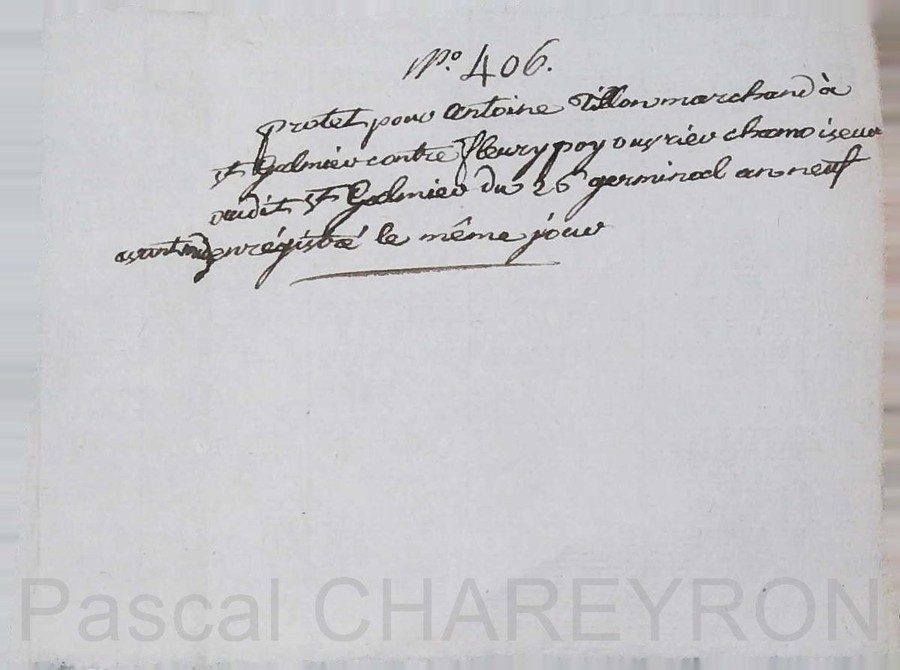 No. 406.
protet pour antoine Tillon marchand à
st Galmier contre fleury poyousrieu chamoiseur
oudit st Galmier du 26 germinal an neuf
avant midy enrégistré le même jour
Pascal CHAREYRON